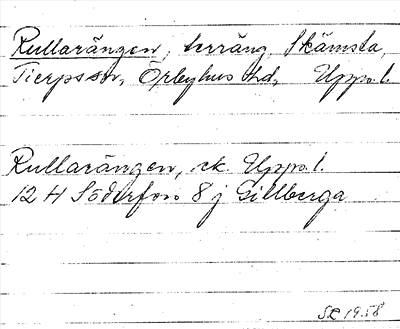 Rullarängen, terräng, Skämsta,
Tierps sn, Örbyhus hd, Upps. l.
Rullarängen, ek. Upps. l.
12 H Söderfors 8 j Gillberga
SC 1958